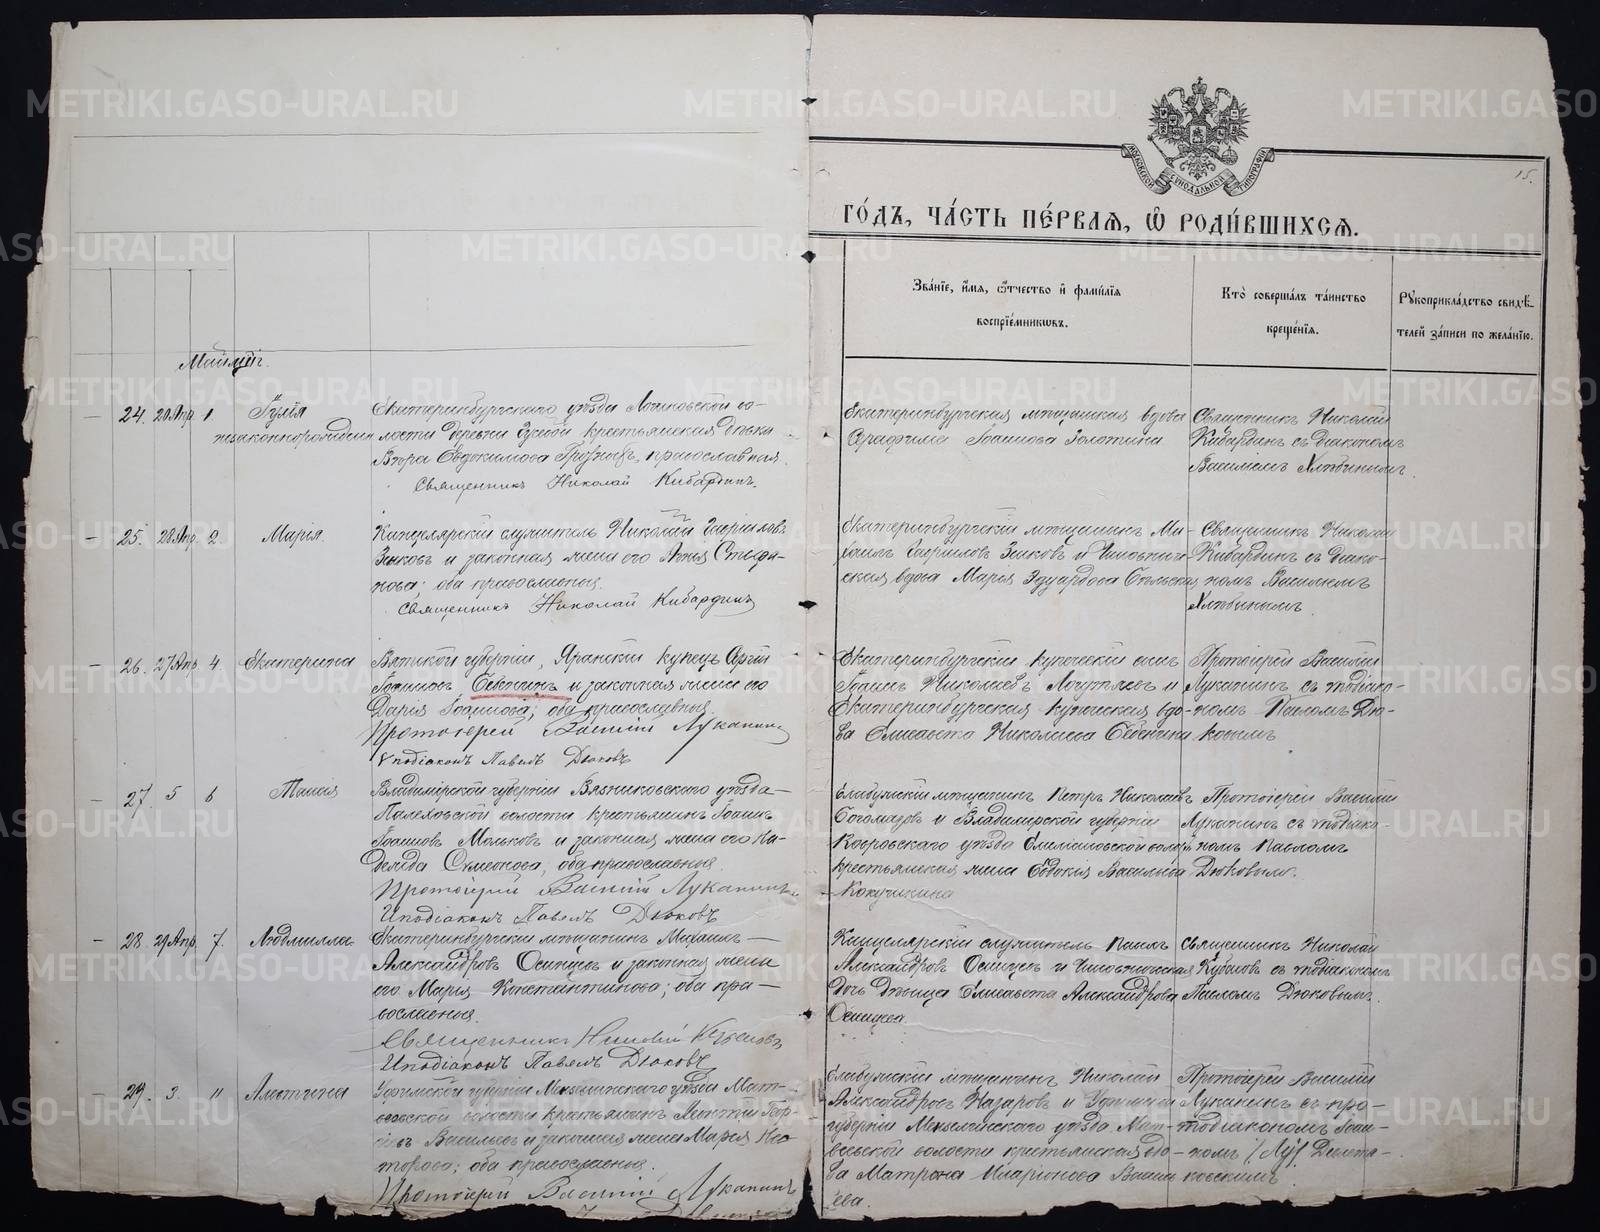 МОСКОВСКОЙ СѴНОДАЛЬНОЙ ТИПОГРАФІИ
15.
ГО́ДЪ, ЧА́СТЬ ПЕ́РВАЯ, Ѿ РОДИ́ВШИХСЯ.
Зва́нїе, и́мя, о́тчество и фами́лїя
воспрїе́мниковъ.
Кто̀ соверша́лъ та́инство
креще́нїя.
Рукоприкла́дство свидѣ́-
телей за́писи по жела́нїю.
Май мцъ.
24. 20 Апр. 1.
незаконнорожденн
Екатеринбургскаго уѣзда во-
лости деревни крестьянская дѣвка
Вѣра Евдокимова православная.
Священникъ Николай Кибардинъ.
Екатеринбургская мѣщанская вдова
Серафима Іоаннова Золотина
Священникъ Николай
Кибардинъ съ діакономъ
Василіемъ Хлѣбинымъ.
25. 28 Апр. 2. Марія.
Канцелярскій служитель Николай Гавріиловъ
Зыковъ и законная жена его Анна Стефа-
нова; оба православныя.
Священникъ Николай Кибардинъ
Екатеринбургскій мѣщанинъ Ми-
хаилъ Гавріиловъ Зыковъ и чиновни-
ская вдова Марія Эдуардова Бѣльская
Священникъ Николай
Кибардинъ съ діако-
номъ Василіемъ
Хлѣбинымъ.
26. 27 Апр. 4. Екатерина
Вятской губерніи, Яранскій купецъ Сергій
Іоанновъ Бебенинъ и законная жена его
Дарія Іоаннова; оба православныя.
Протоіерей Василій Луканинъ
Vподіаконъ Павелъ Дюковъ
Екатеринбургскій купеческій сынъ
Іоаннъ Николаевъ и
Екатеринбургская купеческая вдо-
ва Елисавета Николаева Бебенина
Протоіерей Василій
Луканинъ съ иподіако-
номъ Павломъ Дю-
ковымъ
27. 5 6 Таисія
Владимірской губерніи Вязниковскаго уѣзда
Палеховской волости крестьянинъ Іоаннъ
Іоанновъ Мольковъ и законная жена его На-
дежда Симеонова, оба православныя
Протоіерей Василій Луканинъ
Иподіаконъ Павелъ Дюковъ
Елабужскій мѣщанинъ Петръ Николаевъ
Богомазовъ и Владимірской губерніи
Ковровскаго уѣзда волости
крестьянская жена Евдокія Васильева
Протоіерей Василій
Луканинъ съ иподіако-
номъ Павломъ
Дюковымъ.
28. 29 Апр. 7. Людмилла
Екатеринбургскій мѣщанинъ Михаилъ
Александровъ Осинцевъ и законная жена
его Марія Константинова; оба пра-
вославныя.
Священникъ Николай
Иподіаконъ Павелъ Дюковъ
Канцелярскій служитель Павелъ
Александровъ Осинцевъ и чиновническая
дочь дѣвица Елисавета Александрова
Осинцева.
Священникъ Николай
съ иподіакономъ
Павломъ Дюковымъ.
29. 3. 11
Уфимской губерніи Мензелинскаго уѣзда Мат-
вѣевской волости крестьянинъ Геор-
гіевъ Васильевъ и законная жена Марія Нес-
торова; оба православныя.
Протоіерей Василій Луканинъ
Елабужскій мѣщанинъ Николай
Александровъ Назаровъ и Уфимской
губерніи Мензелинскаго уѣзда Мат-
вѣевской волости крестьянская вдо-
ва Матрона Иларіонова Василь-
ева.
Протоіерей Василій
Луканинъ съ про-
тодіакономъ Іоан-
номъ
METRIKI.GASO-URAL.RU